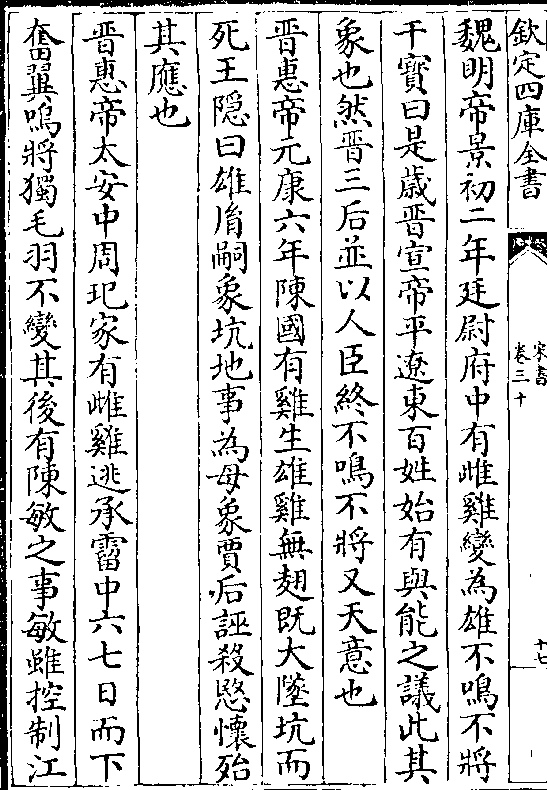 欽定四庫全書
宋書
卷三十
十七
魏明帝景初二年廷尉府中有雌雞變為雄不鳴不將
干寳曰是歲晋宣帝平遼東百姓始有與能之議此其
象也然晋三后並以人臣終不鳴不將又天意也
晋惠帝元康六年陳國有雞生雄雞無翅既大墜坑而
死王隠曰雄胤嗣象坑地事為母象賈后誣殺愍懷殆
其應也
晋惠帝太安中周玘家有雌雞逃承霤中六七日而下
奮翼鳴將獨毛羽不變其後有陳敏之事敏雖控制江